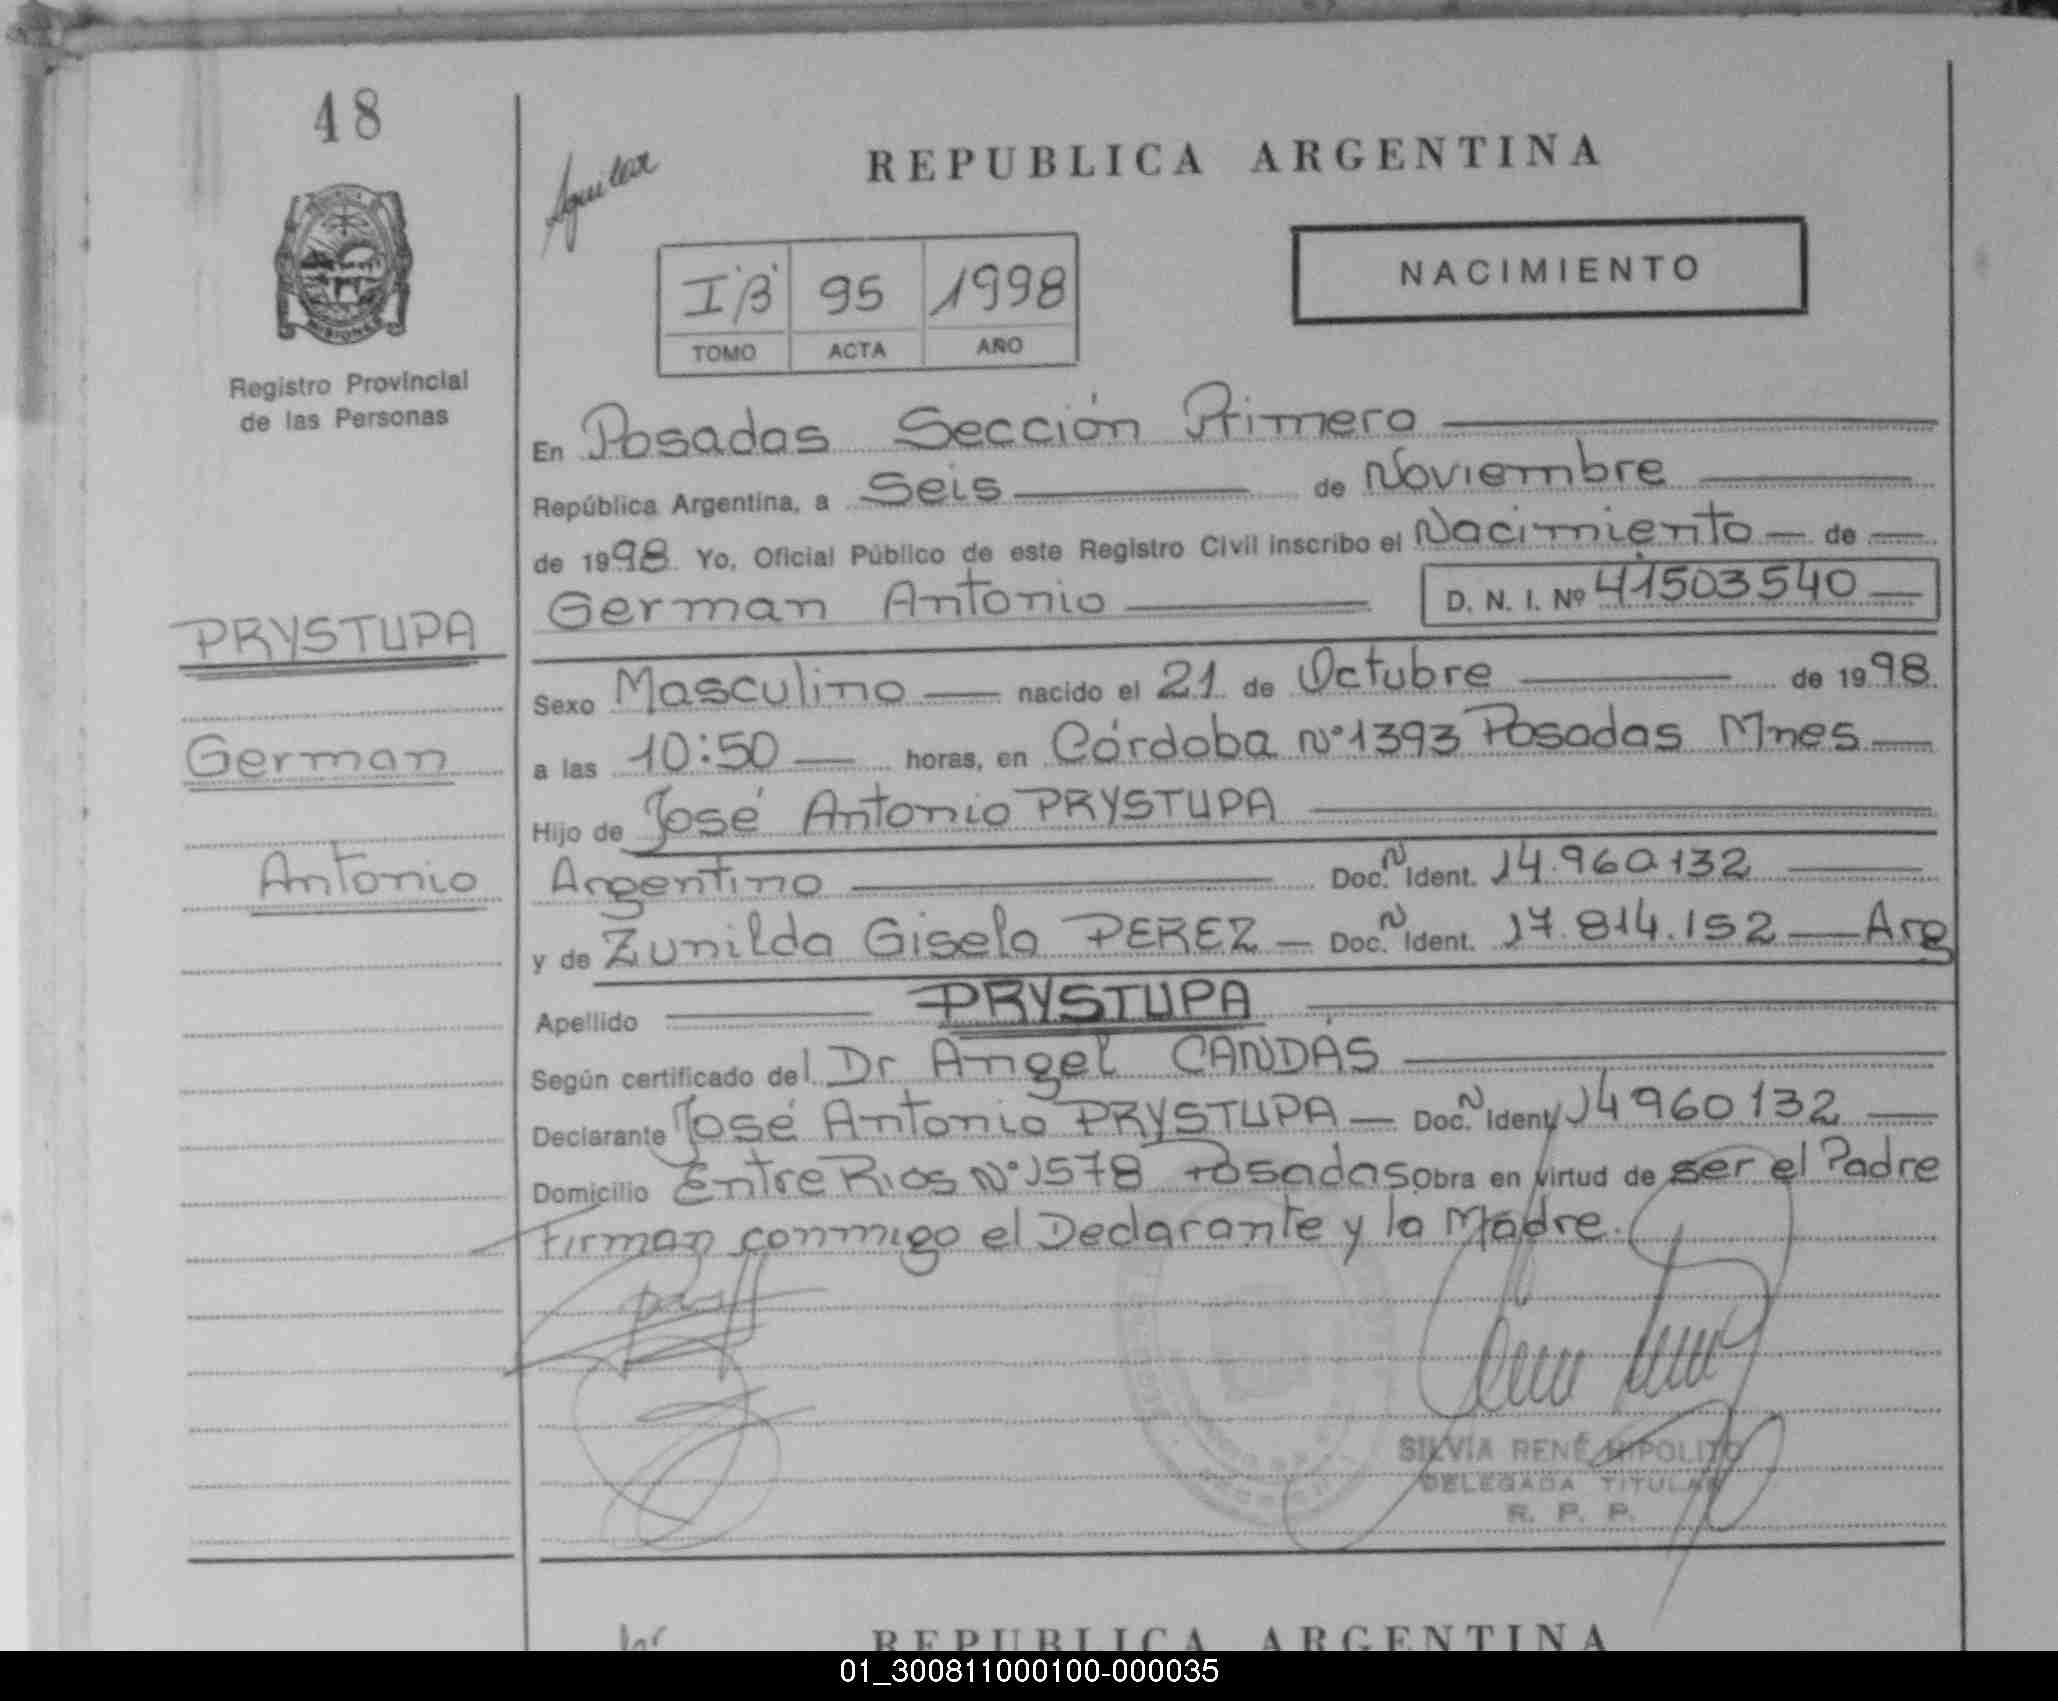 48
Aguilar
REPUBLICA ARGENTINA
NACIMIENTO
I "B" 95 1998
TOMO ACTA AÑO
MISIONES
Registro Provincial
de las Personas
En Posadas Sección Primera
República Argentina, a Seis de Noviembre
de 1998 Yo, Oficial Público de este Registro Civil inscribo el Nacimiento de
German Antonio D. N. I. Nº 41503540
PRYSTUPA
Sexo Masculino nacido el 21 de Octubre de 1998
German
a las 10:50 horas, en Córdoba Nº 1393 Posadas Mnes
Hijo de José Antonio PRYSTUPA
Antonio
Argentino Doc. N Ident. 14.960.132
y de Zunilda Gisela PEREZ Doc. N Ident. 17.814.152 Arg
Apellido PRYSTUPA
Según certificado del Dr Angel CANDÁS
Declarante José Antonio PRYSTUPA Doc. N Ident. 14960132
Domicilio Entre Rios Nº 1578 Posadas Obra en virtud de ser el Padre
Firman conmigo el Declarante y la Madre.
SILVIA RENÉ HIPOLITO
DELEGADA TITULAR
R. P. P.
REPUBLICA ARGENTINA
01_300811000100-000035